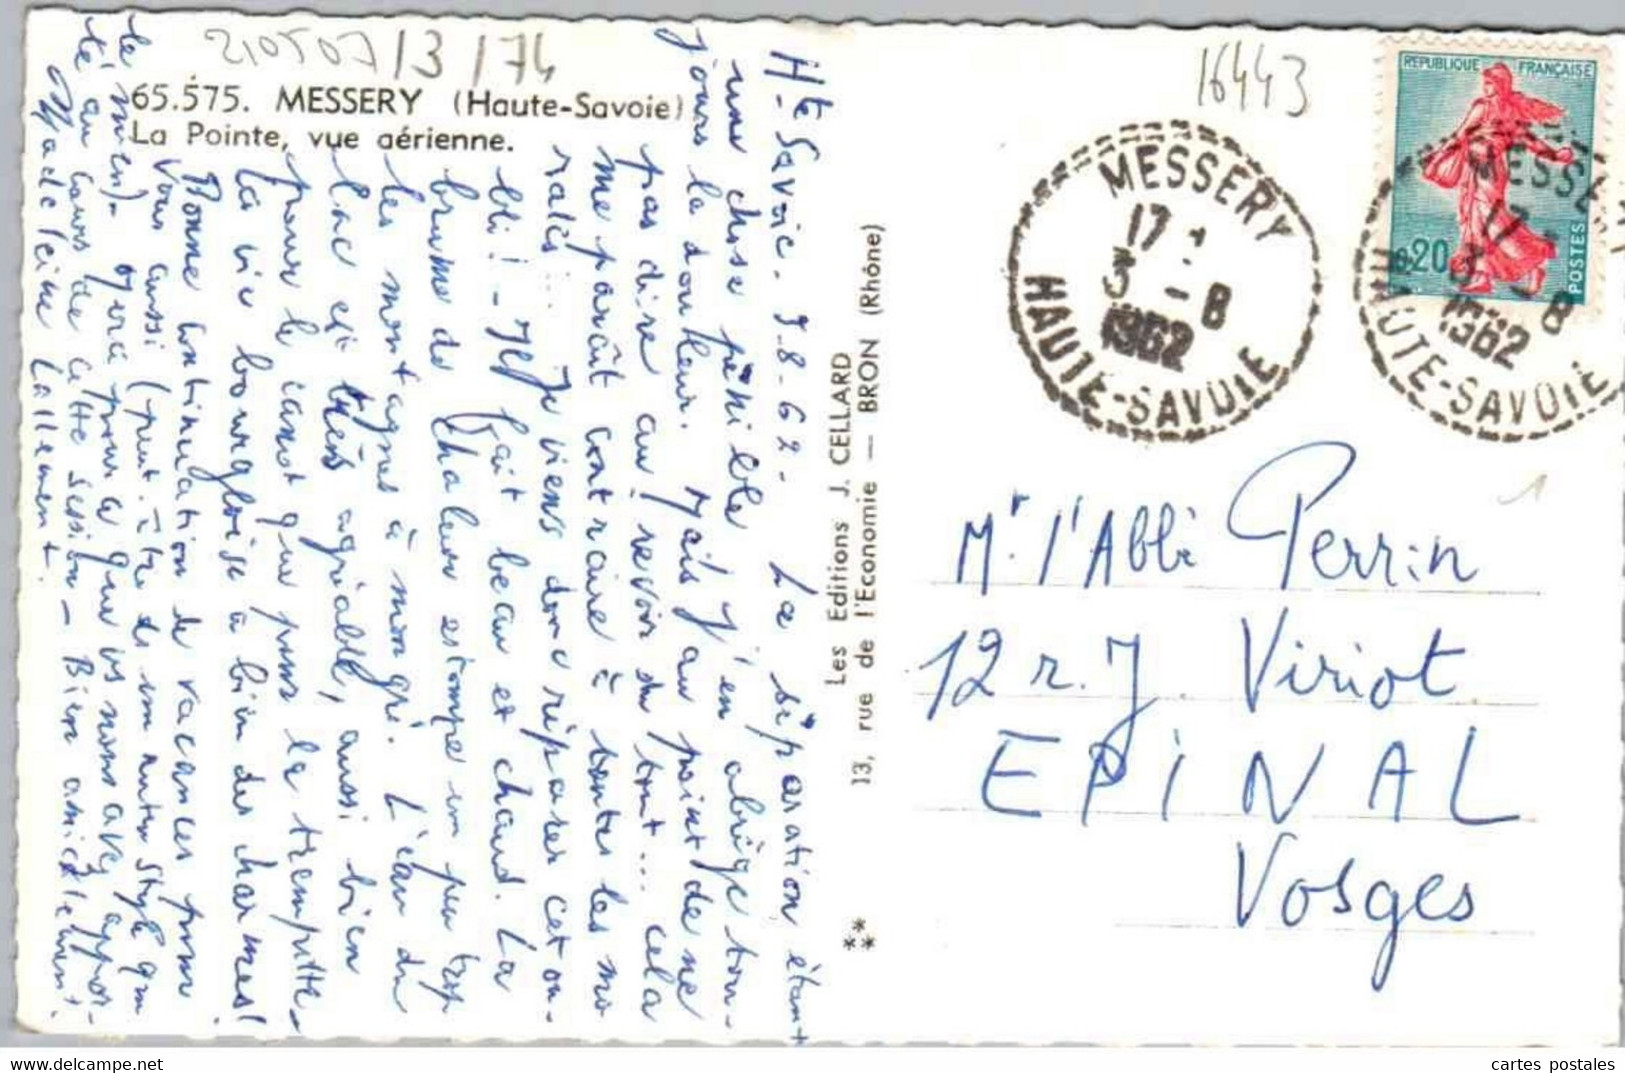 210507/3/74
65.575. MESSERY (Haute-Savoie)
La Pointe, vue aérienne.
16443
REPUBLIQUE FRANÇAISE
0,20
POSTES
MESSERY
17
3 - 8
1962
HAUTE-SAVOIE
MESSERY
17
3 - 8
1962
HAUTE-SAVOIE
Hte Savoie. 9-8-62. La séparation étant
une chose pénible, j'en abrège tou-
jours la douleur. Mais j'au point de ne
pas dire au revoir du tout... cela
me paraît contraire à toutes les mo-
rales... Je viens donc réparer cet ou-
bli! - Il fait beau et chaud. La
brume de chaleur estompe un peu trop
les montagnes à mon gré. L'eau du
lac est très agréable, aussi bien
pour le canot que pour la trempette.
La vie bourgeoise a bien des charmes!
Bonne continuation de vacances pour
vous aussi (peut-être de un autre style que
le mien). Merci pour ce que vs nous avez appor-
té au cours de cette session - Bien amicalement
Madeleine Lallement.
Les Editions J. CELLARD
13, rue de l'Economie — BRON (Rhône)
Mr. l'Abbé Perrin
12 r. J. Viriot
EPINAL
Vosges
delcampe.net
cartes postales